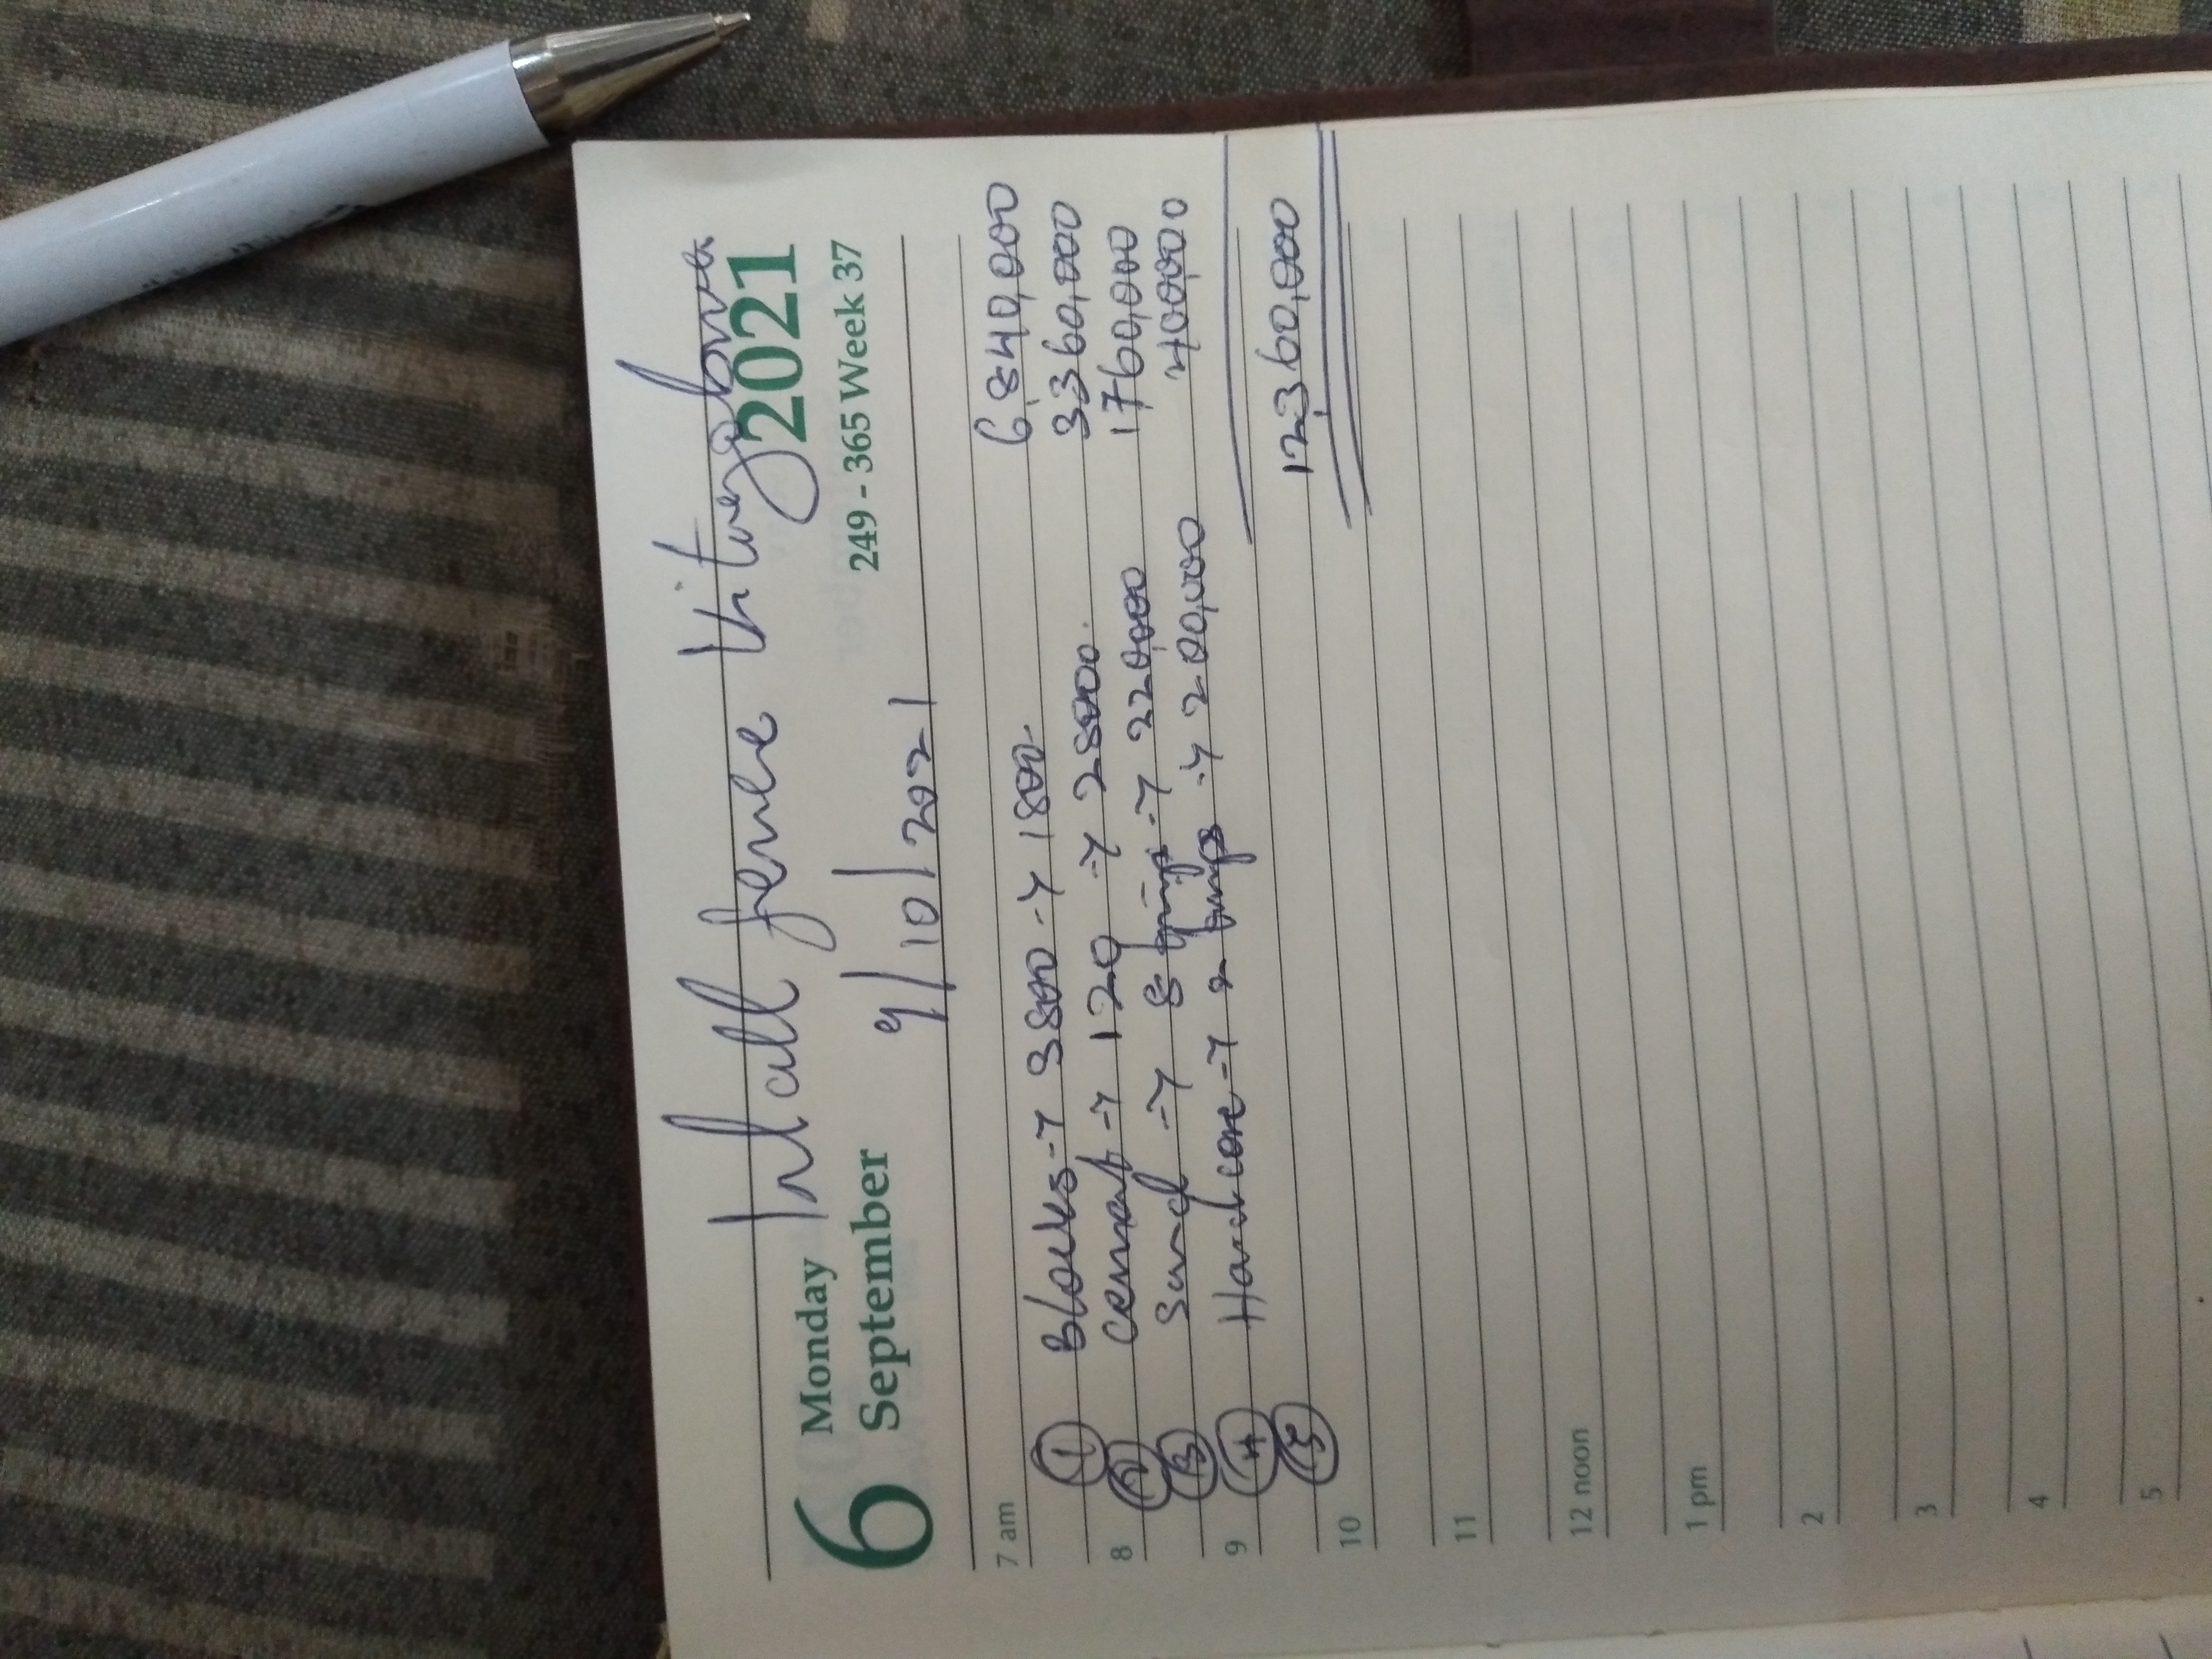 Wall fence Kitagobwa
6 Monday 2021
September 249 - 365 Week 37
9/10/2021
7 am
① Blocks → 3800 → 1800 6,840,000
8 ② cement → 120 → 28000 3360,000
③ Sand → 8 trips → 220,000 1760,000
9 ④ Hardcore → 2 trips → 200,000 400,000
⑤ 12,360,000
10
11
12 noon
1 pm
2
3
4
5